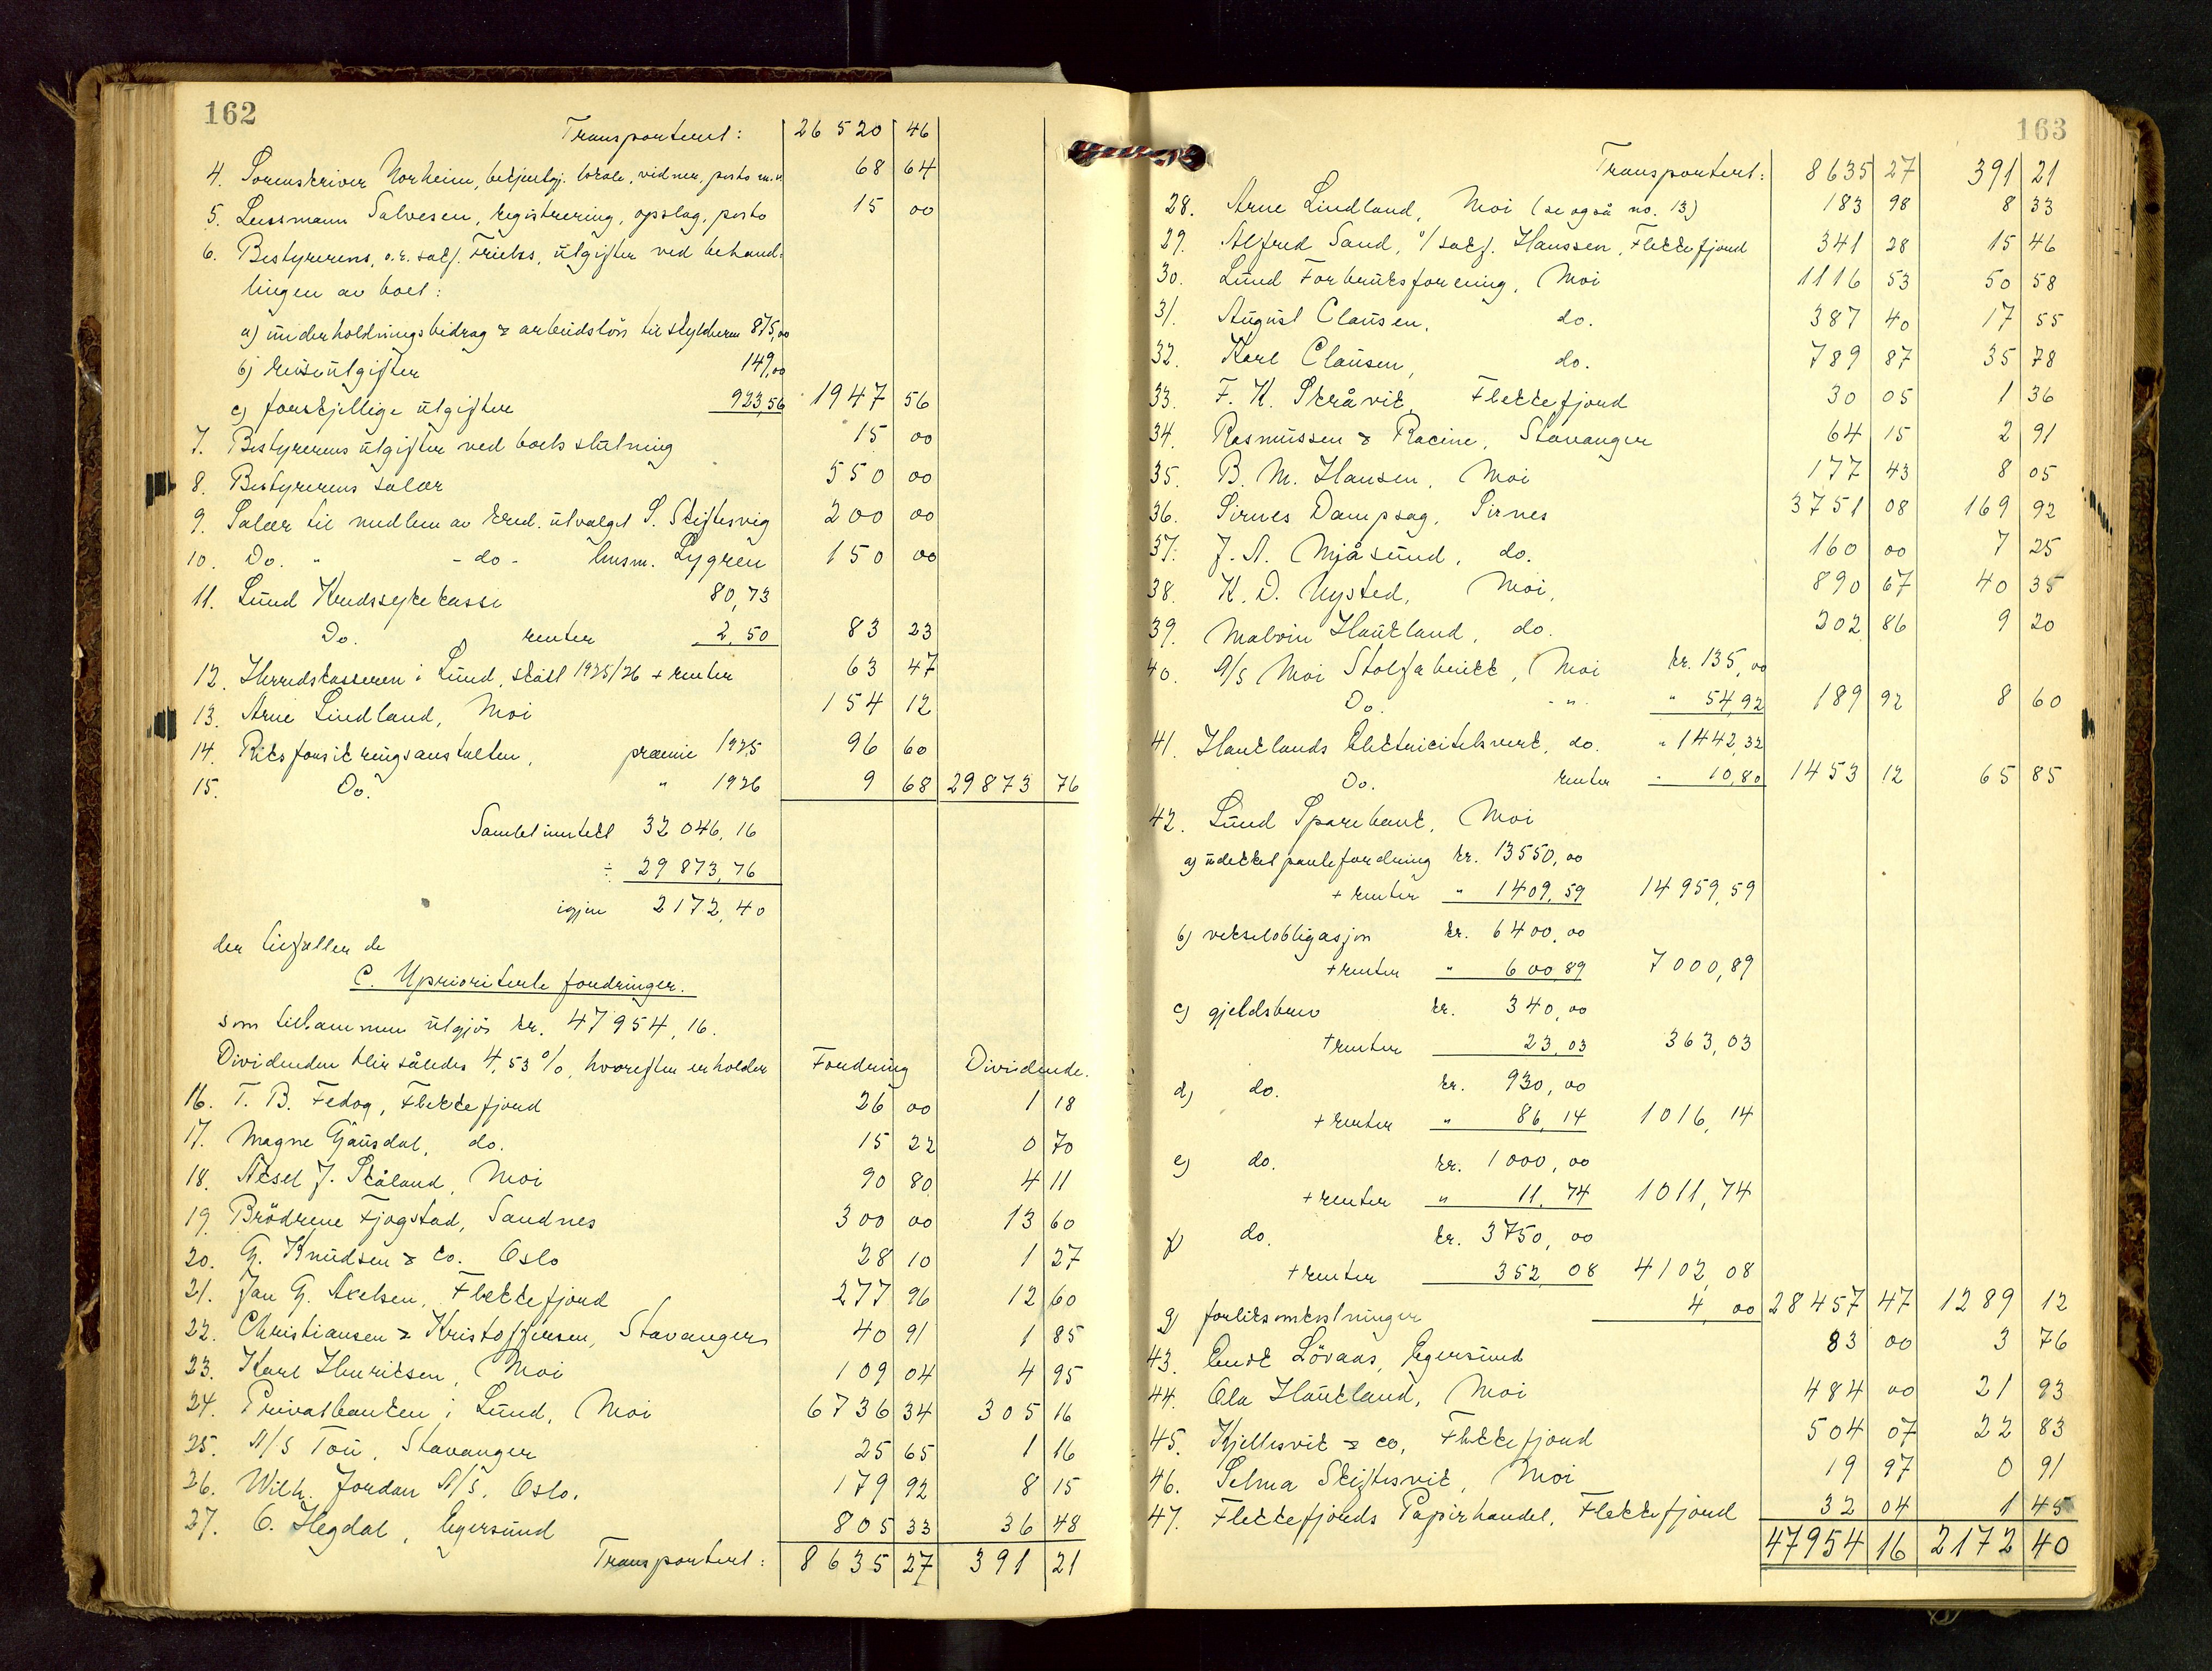 162
Transportert: 26520 46
4. Sorenskriver Norheim, bekjentgj. lokale, vidner, porto m.v. 68 64
5. Lensmann Salvesen, registrering, opslag, porto 15 00
6. Bestyrerens, o.r. sakf. Friels, utgifter ved behand-
lingen av boet:
a) underholdningsbidrag & arbeidslön til skyldneren 875,00
b) reiseutgifter 149,00
c) forskjellige utgifter 923,56 1947 56
7. Bestyrerens utgifter ved boets slutning 15 00
8. Bestyrerens salær 550 00
9. Salær til medlem av kred.utvalget S. Skiftesvig 200 00
10. Do. " - do - Lensm. Lygren 150 00
11. Lund Kredssykekasse 80,73
Do. renter 2,50 83 23
12. Herredskasseren i Lund, skatt 1925/26 + renter 63 47
13. Arne Lindland, Moi 154 12
14. Riksforsikringsanstalten, præmie 1925 96 60
15. Do. " 1926 9 68 29873 76
Samlet inntekt 32046,16
÷ 29873,76
igjen 2172,40
der tilfaller de
C. Uprioriterte fordringer.
som tilsammen utgjör kr. 47954,16.
Dividenden blir således 4,53 %, hvorefter erholder Fordring Dividende.
16. T. B. Fedog, Flekkefjord 26 00 1 18
17. Magne Gausdal, do. 15 22 0 70
18. Aksel J. Skåland, Moi 90 80 4 11
19. Brödrene Fjogstad, Sandnes 300 00 13 60
20. G. Knudsen & Co. Oslo 28 10 1 27
21. Jan G. Axelsen, Flekkefjord 277 96 12 60
22. Christiansen & Kristoffersen, Stavanger 40 91 1 85
23. Karl Henriksen, Moi 109 04 4 95
24. Privatbanken i Lund, Moi 6736 34 305 16
25. A/S Tou, Stavanger 25 65 1 16
26. Wilh. Jordan A/S. Oslo. 179 92 8 15
27. O. Hegdal, Egersund 805 33 36 48
Transportert: 8635 27 391 21
163
Transportert: 8635 27 391 21
28. Arne Lindland, Moi (se også no. 13) 183 98 8 33
29. Alfred Sand, v/ sakf. Hanssen, Flekkefjord 341 28 15 46
30. Lund Forbruksforening, Moi 1116 53 50 58
31. August Clausen, do. 387 40 17 55
32. Karl Clausen, do. 789 87 35 78
33. F. K. Skråvik, Flekkefjord 30 05 1 36
34. Rasmussen & Racine, Stavanger 64 15 2 91
35. B. M. Hansen, Moi 177 43 8 05
36. Sirnes Dampsag, Sirnes 3751 08 169 92
37. J. A. Mjåsund, do. 160 00 7 25
38. K. D. Nysted, Moi, 890 67 40 35
39. Malvin Haukland, do. 202 86 9 20
40. A/S Moi Stolfabrikk, Moi kr. 135,00
Do. - " - " 54,92 189 92 8 60
41. Hauklands Elektricitetsverk, do. " 1442,32
Do. renter " 10,80 1453 12 65 85
42. Lund Sparebank, Moi
a) udekket pantefordring kr. 13550,00
+ renter " 1409,59 14959,59
b) vekselobligasjon kr. 6400,00
+ renter " 600,89 7000,89
c) gjeldsbrev kr. 340,00
+ renter 23,03 363,03
d) do. kr. 930,00
+ renter " 86,14 1016,14
e) do. kr. 1000,00
+ renter " 11,74 1011,74
f) do. kr. 3750,00
+ renter 352,08 4102,08
g) forliksomkostninger 4,00 28457 47 1289 12
43. Lövaas, Egersund 83 00 3 76
44. Ola Haukland, Moi 484 00 21 93
45. Kjellesvik & co, Flekkefjord 504 07 22 83
46. Selma Skiftesvik, Moi 19 97 0 91
47. Flekkefjords Papirhandel, Flekkefjord 32 04 1 45
47954 16 2172 40